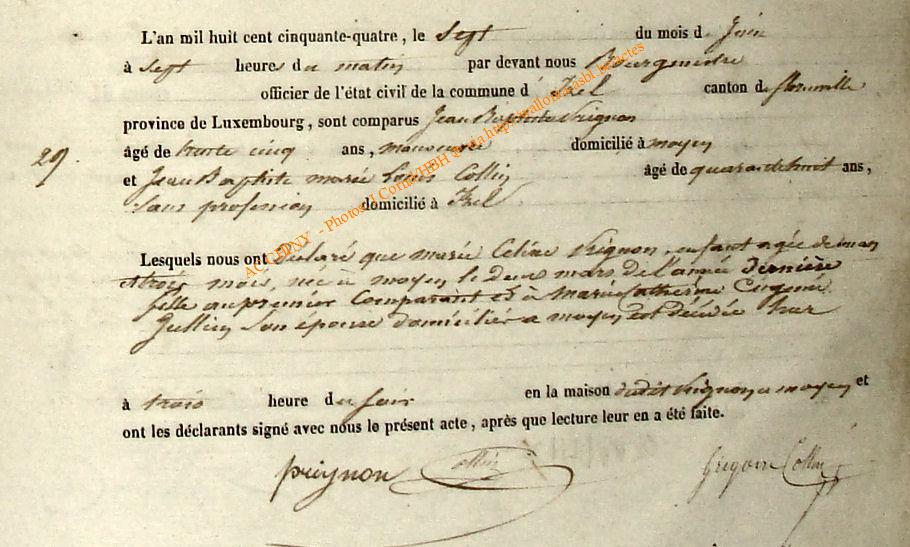 L'an mil huit cent cinquante-quatre, le sept du mois de Juin
à sept heures du matin par devant nous Bourgmestre
officier de l'état civil de la commune d' Izel canton de florenville
province de Luxembourg, sont comparus Jean Baptiste Wrignon
âgé de trente cinq ans, manoeuvre domicilié à moyen
29. et Jean Baptiste marie Louis Collin âgé de quarante huit ans,
sans profession domicilié à Izel
Lesquels nous ont déclaré que marie Celine Wrignon, enfant agée de un an
trois mois, née à moyen le deux mars de l'année dernière
fille au premier comparant et à Marie Catherine
Jullien son épouse domiciliés a moyen est décédée hier
à trois heure du soir en la maison dudit Wrignon a moyen et
ont les déclarants signé avec nous le présent acte, après que lecture leur en a été faite.
Collin Collin
ACCEDNY - Photos J Cornil/HBH